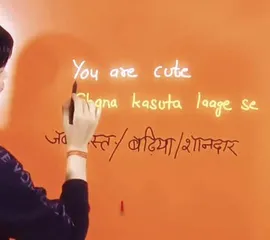 You are cute
Ghana kasuta laage se
बढ़िया/शानदार